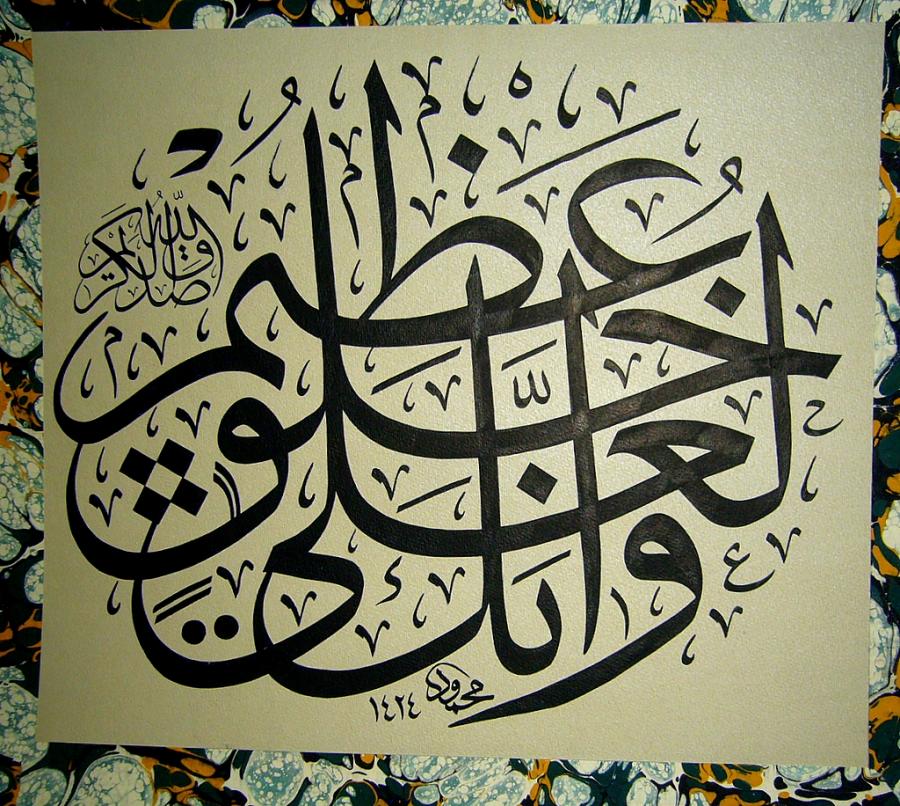 وَإِنَّكَ لَعَلَىٰ خُلُقٍ عَظِيمٍ
صدق الله الكريم
محمود
١٤٢٤